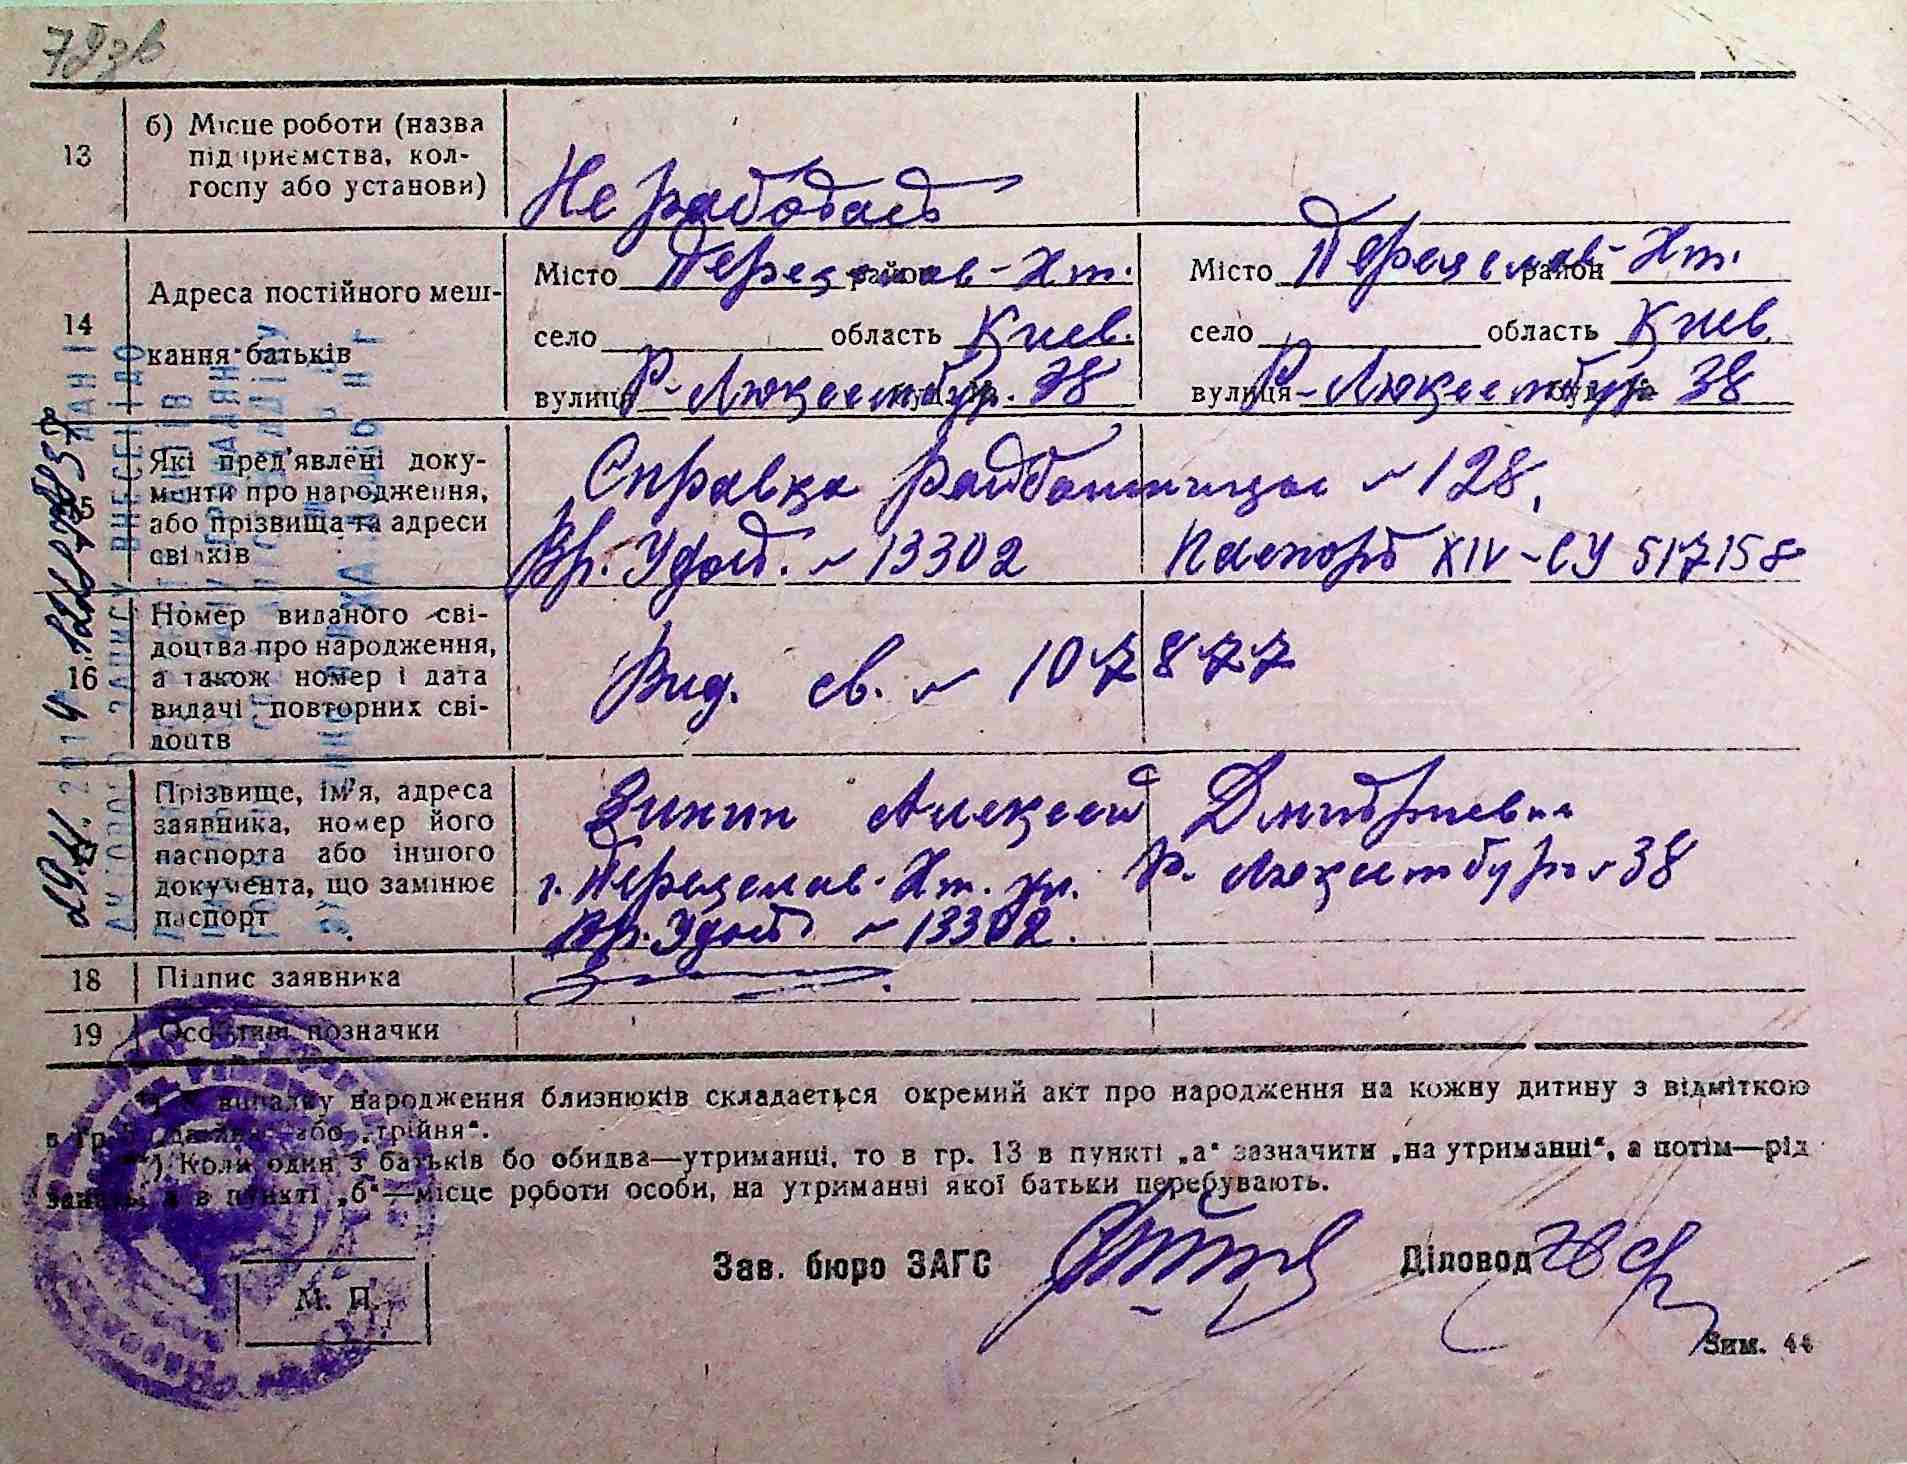 79зв
13
б) Місце роботи (назва
підприємства, кол-
госпу або установи)
Не работает
14
Адреса постійного меш-
кання батьків
Місто Переяслав-Хм. район
село область Киев.
вулиця Р-Люксембур. 38
Місто Переяслав-Хм. район
село область Киев.
вулиця Р-Люксембур 38
15
Які пред'явлені доку-
менти про народження,
або прізвища та адреси
свідків
Справка райбольницы № 128,
Вр. Удост. № 13302 Паспорт XIV-СУ 517158
16
Номер виданого сві-
доцтва про народження,
а також номер і дата
видачі повторних сві-
доцтв
Выд. св. № 107877
Прізвище, ім'я, адреса
заявника, номер його
паспорта або іншого
документа, що замінює
паспорт
Зинин Алексей Дмитриевич
г. Переяслав-Хм. ул. Р. Люксембург № 38
Вр. Удост № 13302.
18
Підпис заявника
19
Особливі позначки
*) У випадку народження близнюків складається окремий акт про народження на кожну дитину з відміткою
в гр. „двійня“ або „трійня“.
**) Коли один з батьків бо обидва—утриманці, то в гр. 13 в пункті „а“ зазначити „на утриманці“, а потім—рід
занять, а в пункті „б“—місце роботи особи, на утриманні якої батьки перебувають.
Зав. бюро ЗАГС
Діловод
М. П.
Зим. 44